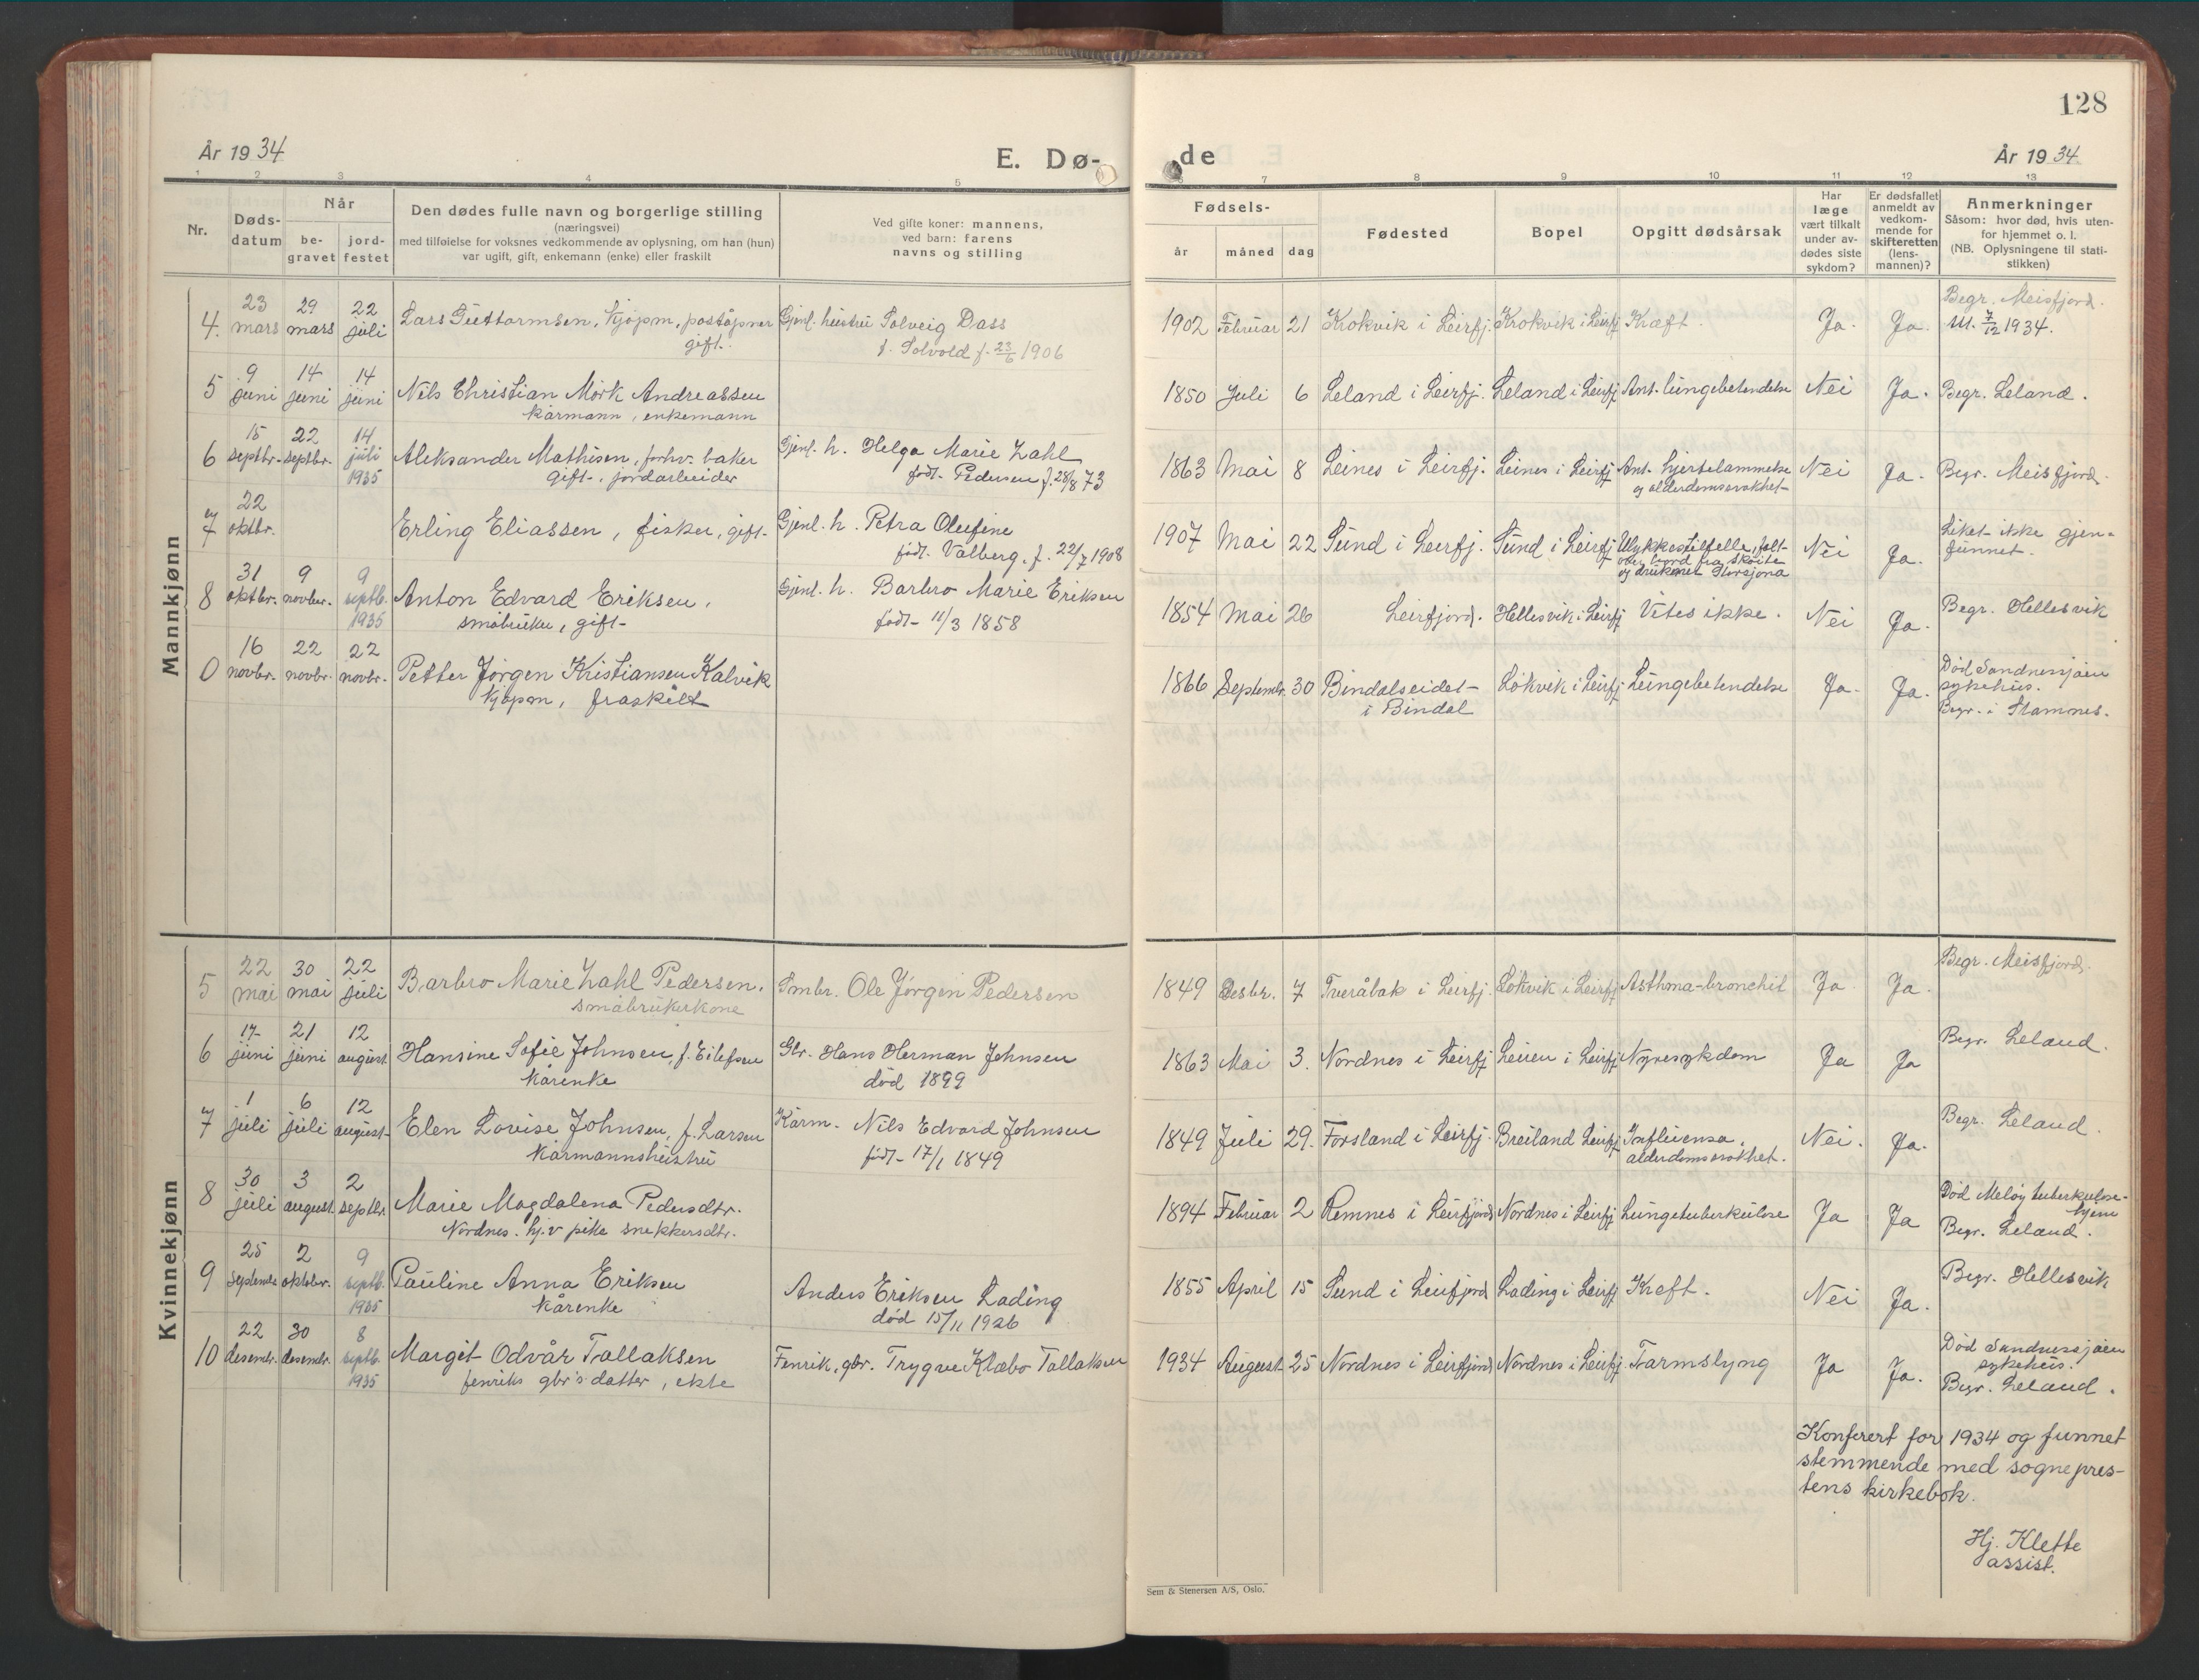 128
År 1934
E. Dø-
de
År 1934
1 2 3 4 5
6 7 8 9 10 11 12 13
Nr.
Døds-
datum
Når
be-
gravet
jord-
festet
Den dødes fulle navn og borgerlige stilling
(næringsvei)
med tilføielse for voksnes vedkommende av oplysning, om han (hun)
var ugift, gift, enkemann (enke) eller fraskilt
Ved gifte koner: mannens,
ved barn: farens
navns og stilling
Fødsels-
år
måned
dag
Fødested
Bopel
Opgitt dødsårsak
Har
læge
vært tilkalt
under av-
dødes siste
sykdom?
Er dødsfallet
anmeldt av
vedkom-
mende for
skifteretten
(lens-
mannen)?
Anmerkninger
Såsom: hvor død, hvis uten-
for hjemmet o. l.
(NB. Oplysningene til stati-
stikken)
Mannkjønn
23 29 22
4. mars mars juli Lars Guttormsen, kjøpm., poståpner Gjenl. hustru Solveig Dass
gift. f. Solvold f. 23/6 1906
1902 Februar 21 Krokvik i Leirfj. Krokvik i Leirfj Kræft. Ja. Ja.
Begr. Meisfjord.
Ut. 7/12 1934.
9 14 14
5 juni juni juni Nils Christian Mørk Andreassen
kårmann, enkemann
1850 Juli 6 Leland i Leirfj. Leland i Leirfj Ant. lungebetendelse Nei Ja. Begr. Leland.
15 22 14
6 septbr. septbr. juli Aleksander Mathisen, forhv. baker Gjenl. h. Helga Marie Zahl
1935 gift, jordarbeider født Pedersen f. 28/8 73
1863 Mai 8 Leines i Leirfj. Leines i Leirfj Ant. hjertelammelse Nei Ja. Begr. Meisfjord.
og alderdomssvakhet
22
7 oktbr. Erling Eliassen, fisker, gift. Gjenl. h. Petra Olufine
født Valberg, f. 22/7 1908
1907 Mai 22 Sund i Leirfj. Sund i Leirfj Ulykkestilfelle, falt Nei Ja.
over bord fra skøite
og druknet Storsjona
Liket ikke gjen-
funnet.
31 9 9
8 oktbr. novbr. septb. Anton Edvard Eriksen, Gjenl. h. Barbro Marie Eriksen
1935 småbruker, gift født 11/3 1858
1854 Mai 26 Leirfjord. Hellesvik i Leirfj Vites ikke. Nei Ja. Begr. Hellesvik
16 22 22
0 novbr. novbr. novbr. Petter Jørgen Kristiansen Kalvik
kjøpm, fraskilt
1866 Septembr. 30 Bindalseidet Løkvik i Leirfj Lungebetendelse Ja. Ja.
i Bindal
Død Sandnessjøen
sykehus.
Begr. i Stamnes.
Kvinnekjønn
22 30 22
5 mai mai juli Barbro Marie Zahl Pedersen. Smbr. Ole Jørgen Pedersen
småbrukerkone
1849 Desbr. 7 Tveråbak i Leirfj. Løkvik i Leirfj Asthma-bronchit Ja. Ja. Begr. Meisfjord.
17 21 12
6 juni juni august Hansine Sofie Johnsen, f. Eilefsen Gbr. Hans Herman Johnsen
kårenke død 1899
1863 Mai 3. Nordnes i Leirfj Leuen i Leirfj Nyresykdom Ja Ja Begr. Leland.
1 6 12
7 juli juli august Elen Lovise Johnsen, f. Larsen Kårm. Nils Edvard Johnsen
kårmannshustru født 17/1 1849
1849 Juli 29. Forsland i Leirfj. Breiland Leirfj Influensa, Nei. Ja. Begr. Leland.
alderdomssvakhet.
30 3 2
8 juli august septbr. Marie Magdalena Pedersdtr.
Nordnes. hj.v. pike snekkersdtr.
1894 Februar 2 Remnes i Leirfjord Nordnes i Leirfj Lungetuberkulose Ja Ja
Død Meløy tuberkulose-
hjem
Begr. Leland.
25 2 9
9 Septembr oktober. septb. Pauline Anna Eriksen Anders Eriksen Lading
1935 kårenke død 15/11 1926
1855 April 15 Sund i Leirfjord Lading i Leirfj Kreft. Nei Ja. Begr. Hellesvik
22 30 8
10 desembr. desembr. septb. Margit Odvår Tallaksen Fenrik, gbr. Trygve Klæbo Tallaksen
1935 fenriks gbr's datter, ekte
1934 August 25 Nordnes i Leirfjord Nordnes i Leirfj. Tarmslyng Ja Ja.
Død Sandnessjøen
sykehus.
Begr. Leland.
Konferert for 1934 og funnet
stemmende med sognepres-
tens kirkebok.
Hj. Klette
assist.
Sem & Stenersen A/S, Oslo.